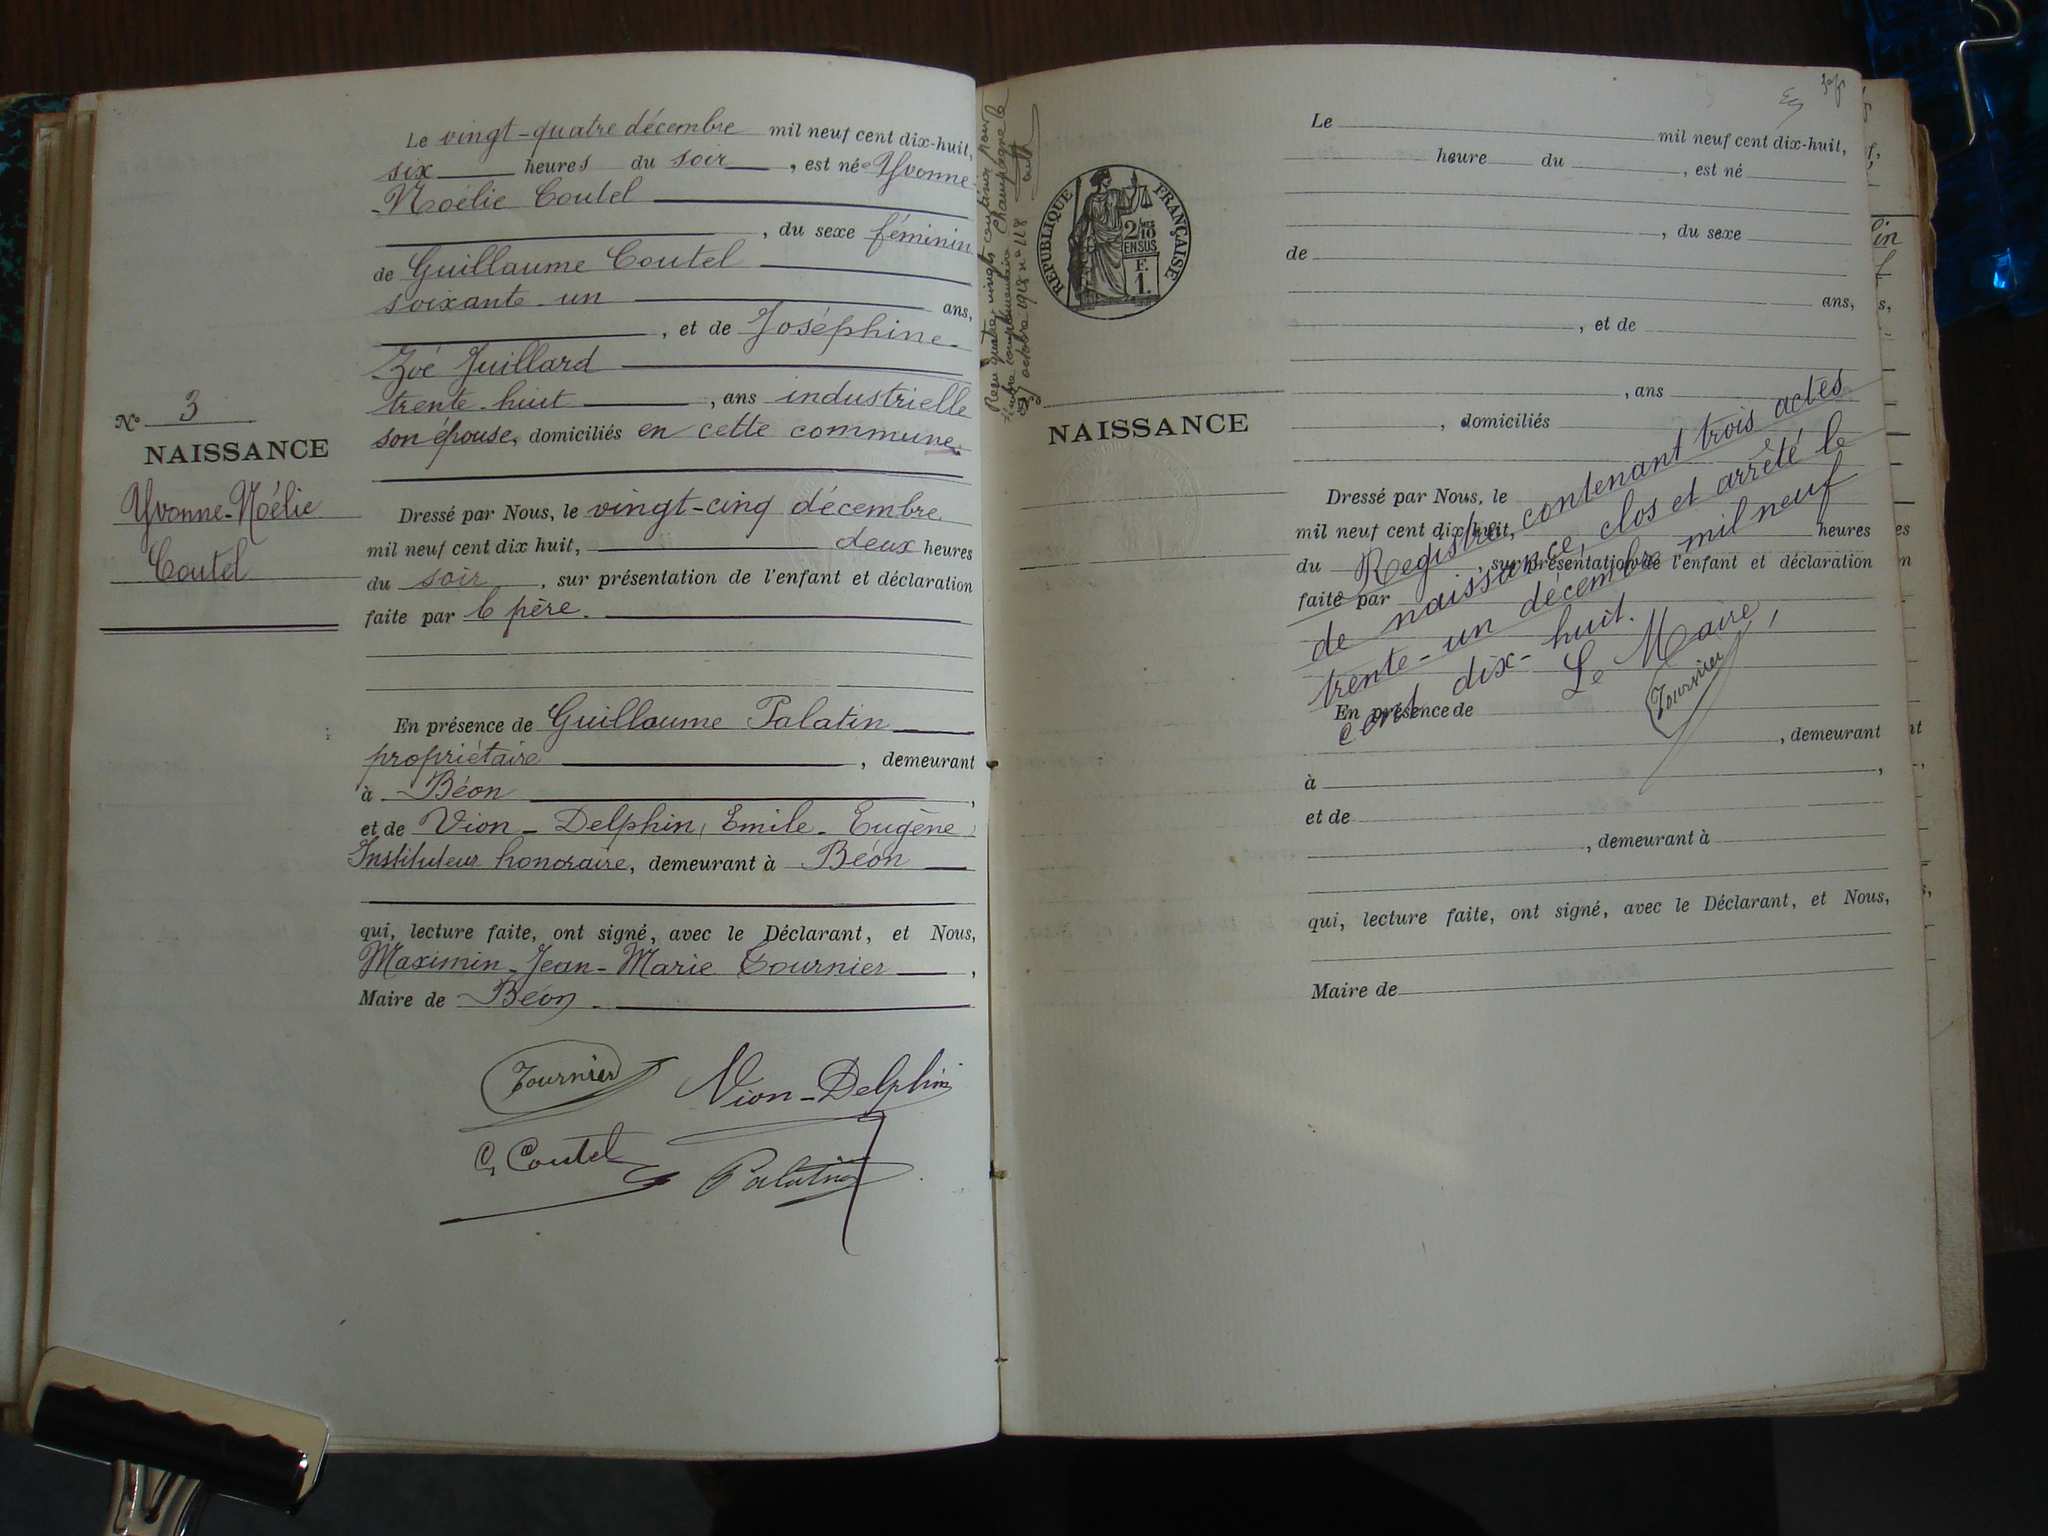 Le vingt-quatre décembre mil neuf cent dix-huit,
six heures du soir, est née Yvonne
Noélie Coutel
, du sexe féminin
de Guillaume Coutel
soixante-un ans,
, et de Joséphine-
Zoé Juillard
trente-huit, ans industrielle
son épouse, domiciliés en cette commune.
N° 3
NAISSANCE
Yvonne-Noélie
Coutel
Dressé par Nous, le vingt-cinq décembre
mil neuf cent dix huit, deux heures
du soir, sur présentation de l'enfant et déclaration
faite par le père.
En présence de Guillaume Palatin
propriétaire, demeurant
à Béon,
et de Vion-Delphin, Emile-Eugène
Instituteur honoraire, demeurant à Béon
qui, lecture faite, ont signé, avec le Déclarant, et Nous,
Maximin-Jean-Marie Tournier,
Maire de Béon.
Tournier Vion-Delphin
Coutel Palatin
Reçu quatre-vingts centimes pour
timbre complémentaire Champagne le
octobre 1918 n° 118
RÉPUBLIQUE FRANÇAISE
2/10
EN SUS
F.
1.
NAISSANCE
Le mil neuf cent dix-huit,
heure du , est né
, du sexe
de
ans,
, et de
, ans
, domiciliés
Dressé par Nous, le
mil neuf cent dix huit, heures
du , sur présentation de l'enfant et déclaration
faite par
En présence de
, demeurant
à ,
et de
, demeurant à
qui, lecture faite, ont signé, avec le Déclarant, et Nous,
Maire de
Registre, contenant trois actes
de naissance, clos et arrêté le
trente-un décembre mil neuf
cent dix-huit.
Le Maire,
Tournier